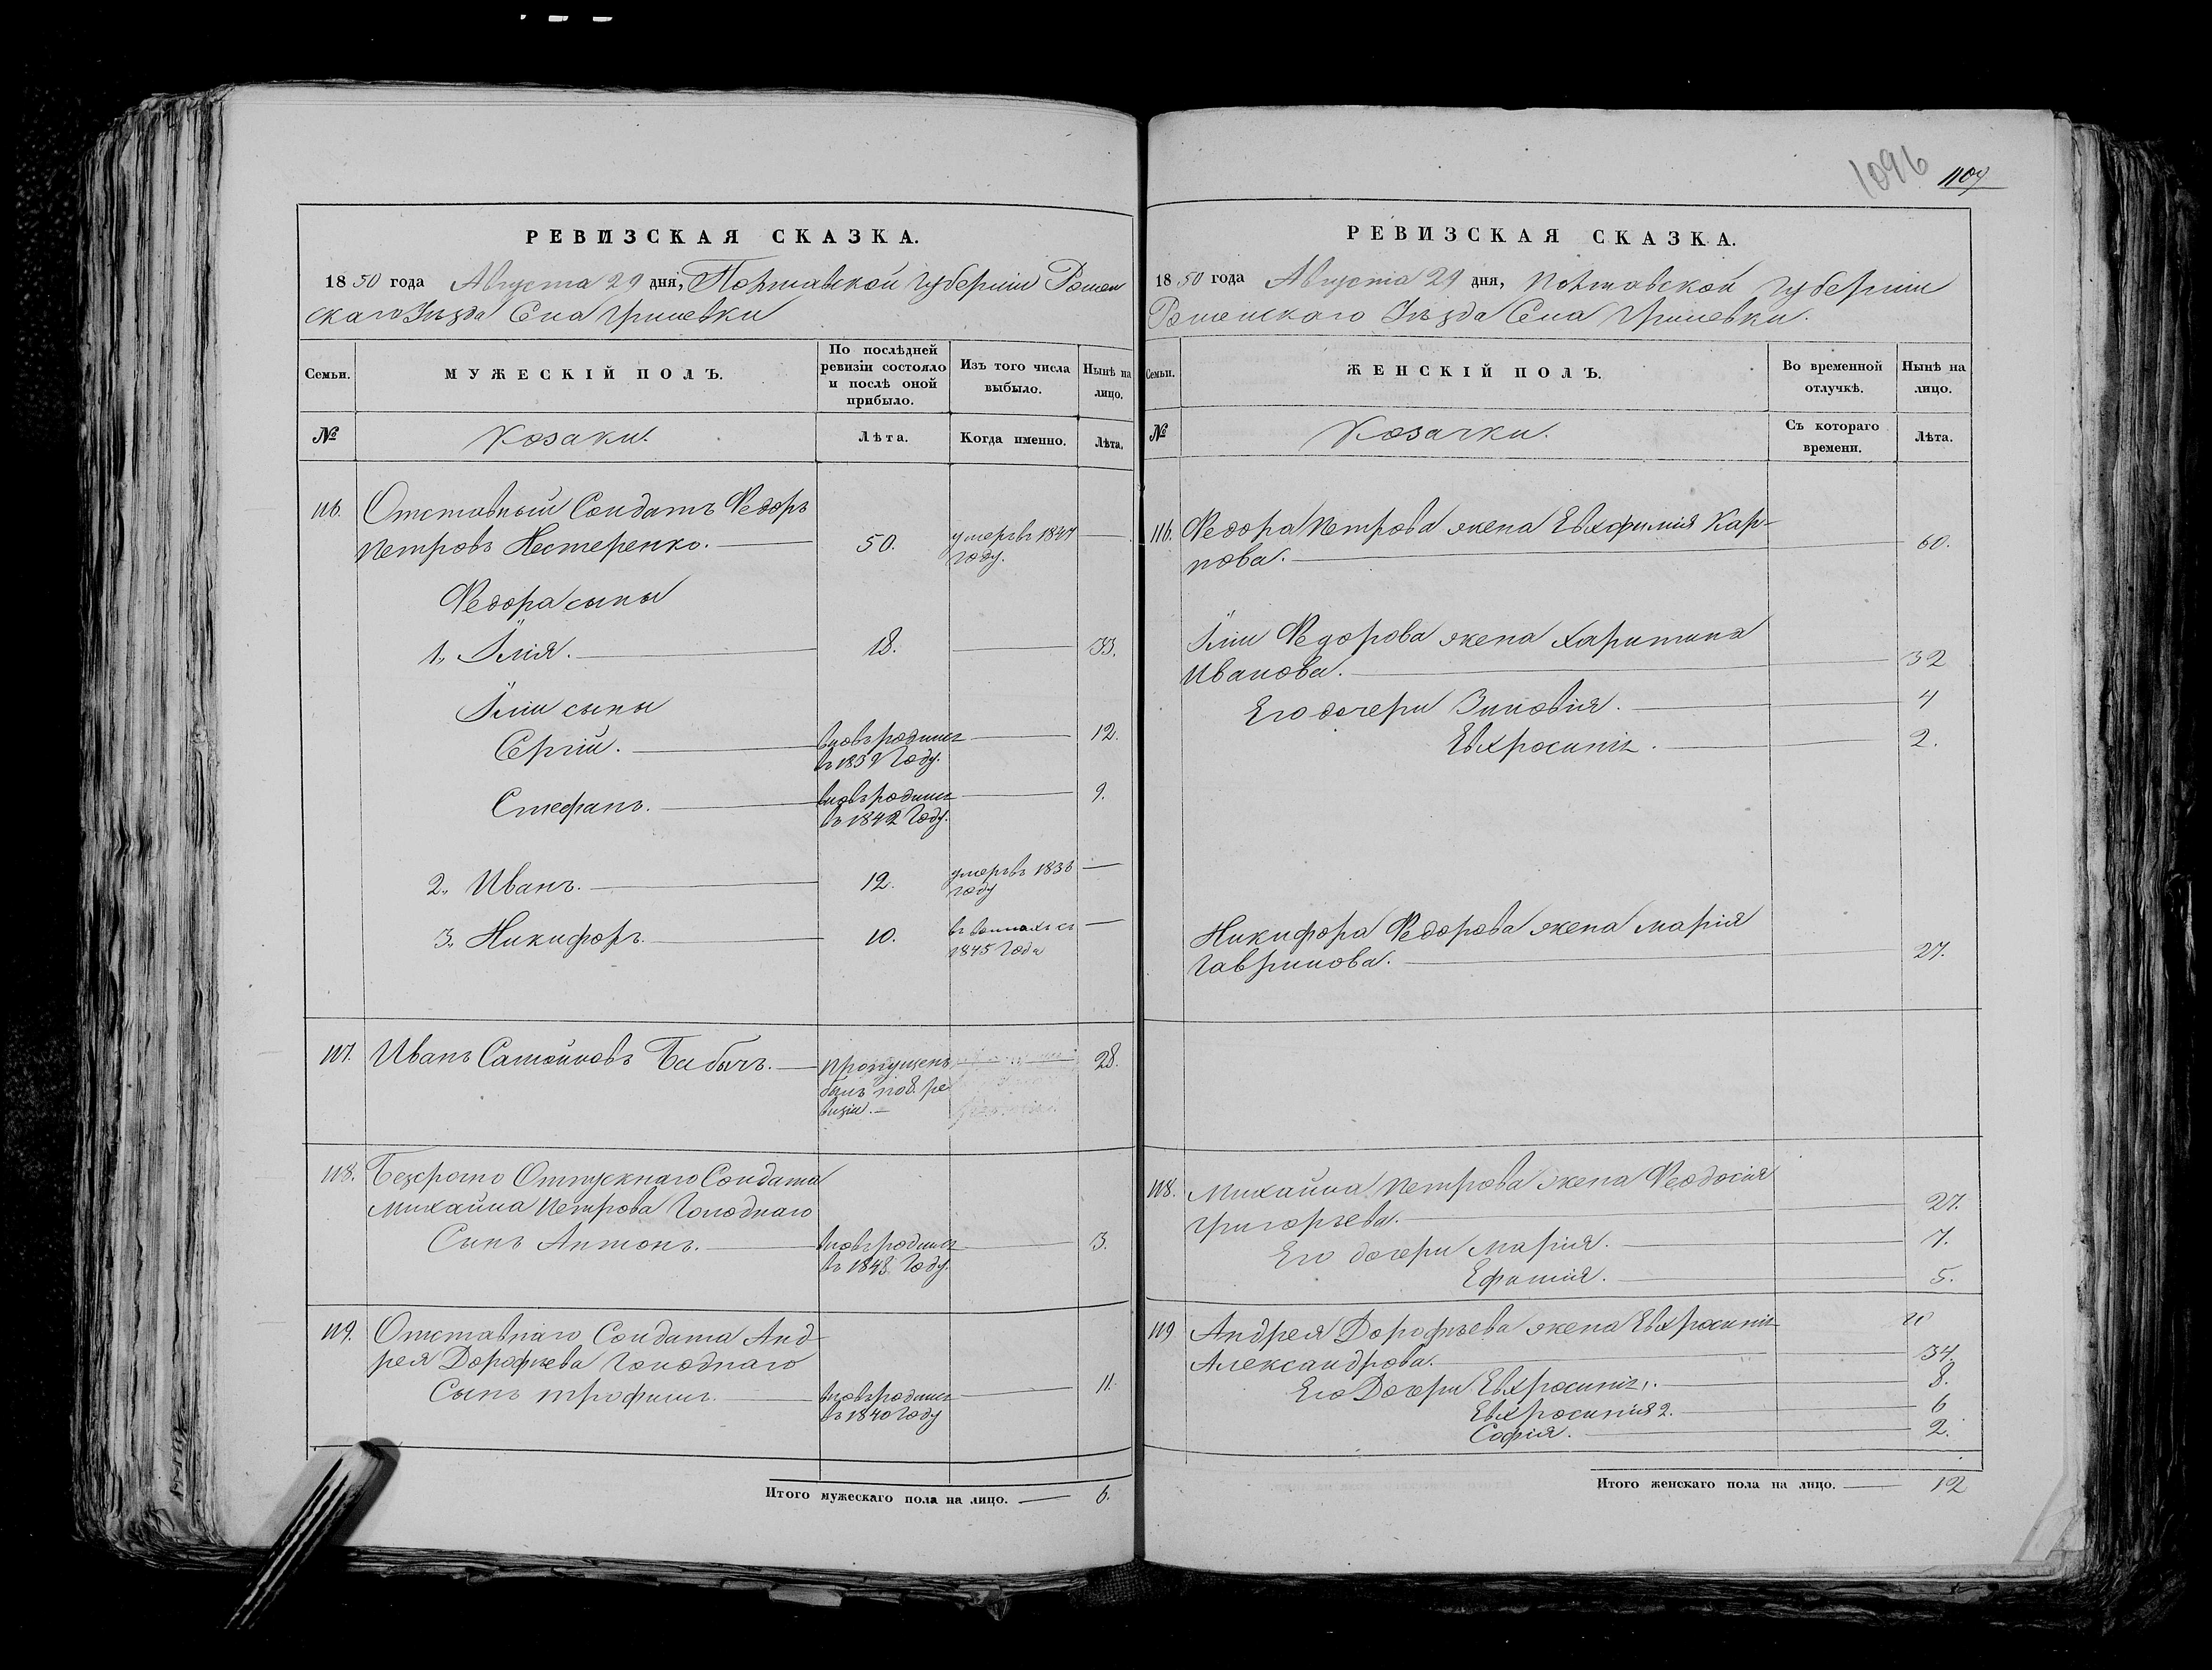 1096 1107
РЕВИЗСКАЯ СКАЗКА.
1850 года Августа 29 дня, Полтавской Губерніи Ромен
скаго Уѣзда Села Гриневки
Семьи.
МУЖЕСКІЙ ПОЛЪ.
По послѣдней
ревизіи состояло
и послѣ оной
прибыло.
Изъ того числа
выбыло.
Нынѣ на
лицо.
№
Козаки.
Лѣта.
Когда именно.
Лѣта.
116. Отставный Солдатъ Федоръ
Петровъ Нестеренко. 50. умеръ въ 1847
году.
Федора сыны
1, Илія. 18. 33.
Иліи сыны
Сергій. вновь родился 12.
въ 1839 году.
Стефанъ. вновь родился 9.
въ 1842 году.
2, Иванъ. 12. умеръ въ 1836
году
3, Никифоръ. 10. съ
1845 года
117. Иванъ Самойловъ Бабичъ. пропущенъ 28.
былъ по 8. ре
визіи.
118. Безсрочно Отпускнаго Солдата
Михайла Петрова Голоднаго
Сынъ Антонъ. вновь родился 3.
въ 1848 году.
119. Отставнаго Солдата Анд
рея Дорофѣева Голоднаго
Сынъ Трофимъ. вновь родился 11.
въ 1840 году
Итого мужескаго пола на лицо. 6.
РЕВИЗСКАЯ СКАЗКА.
1850 года Августа 29 дня, Полтавской Губерніи
Роменскаго Уѣзда Села Гриневки.
Семьи.
ЖЕНСКІЙ ПОЛЪ.
Во временной
отлучкѣ.
Нынѣ на
лицо.
№
Козачки.
Съ котораго
времени.
Лѣта.
116. Федора Петрова жена Евхфимія Кар-
пова. 60.
Иліи Федорова жена Харитина
Иванова. 32
Его дочери Зиновія. 4
Евхросинія. 2.
Никифора Федорова жена Марія
Гаврилова. 27.
118. Михайла Петрова жена Феодосія
Григорьева. 27.
Его дочери Марія. 7.
Ефимія. 5.
119 Андрея Дорофѣева жена Евхросинія
Александрова. 34.
Его Дочери Евхросинія 1. 8.
Евхросинія 2. 6
Софія. 2.
Итого женскаго пола на лицо. 12